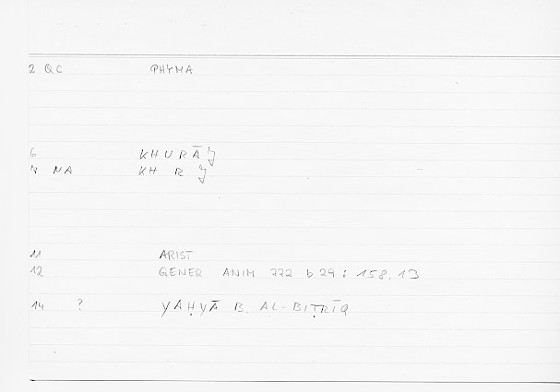 2 QC PHYMA
6 KHURĀJ
N NA KH R J
11 ARIST
12 GENER ANIM 772 b 29 : 158.13
14 ? YAḤYĀ B. AL-BIṬRĪQ